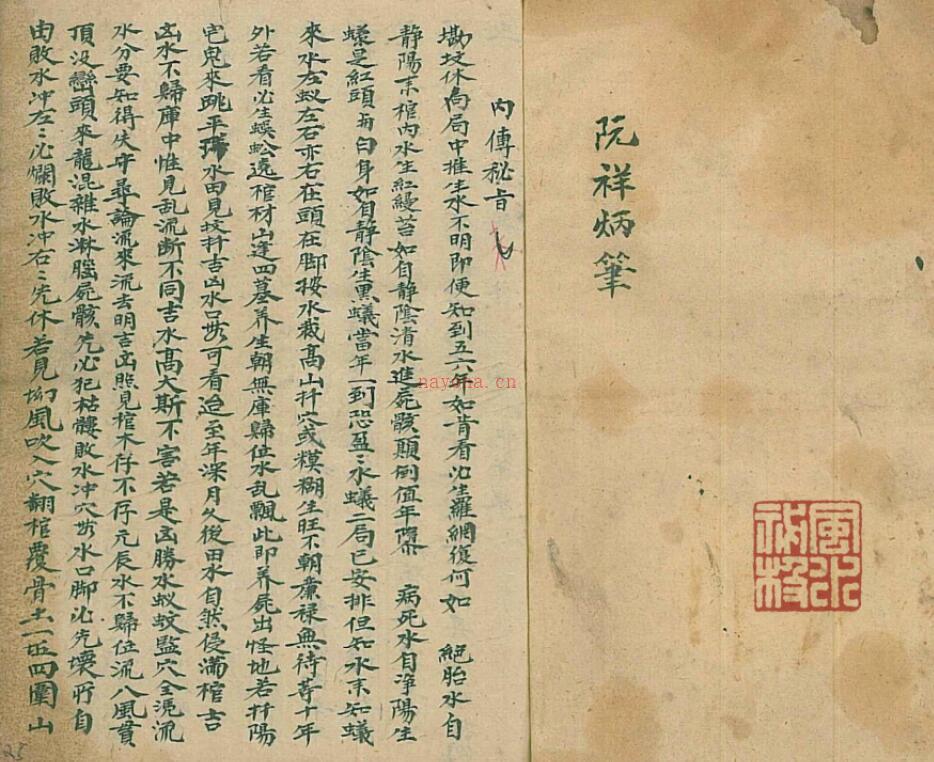 阮祥炳筆
內傳秘旨
勘坟休局局中推生水不明即便知到五六年如肯看必生羅網復何如 絕胎水自
靜陽來棺內水生紅縵苔如自靜陰清水進屍骸顛倒值年際 病死水自淨陽生
蟻是紅頭白身如自靜陰生黑蟻當年一到恐盈〻水蟻一局已安排但知水來知蟻
來水左蚁左右亦右在頭在脚按水裁高山扦穴或模糊生旺不朝廉祿無待等十年
外若看必生蜈蚣遶棺材山逢四墓养生朝無庫歸位水乱飄此即养屍出怪地若扦陽
宅鬼來跳平水田見坟扦吉凶水口可看迨至年深月久後田水自然侵滿棺吉
凶水不歸庫中惟見乱流断不同吉水高大斯不害若是凶勝水蚁蚊監穴全凴流
水分要知得失守尋論流來流去明吉凶照見棺木存不存元辰水不歸位流八風貫
頂没巒頭來龍混雜水淋腦屍骸先必犯枯髏敗水冲穴水口脚必先壞所自
由敗水冲左〻必爛敗水冲右〻先休若見坳風吹入穴翻棺覆骨土一丘四圍山
25
nayona.cn
風水